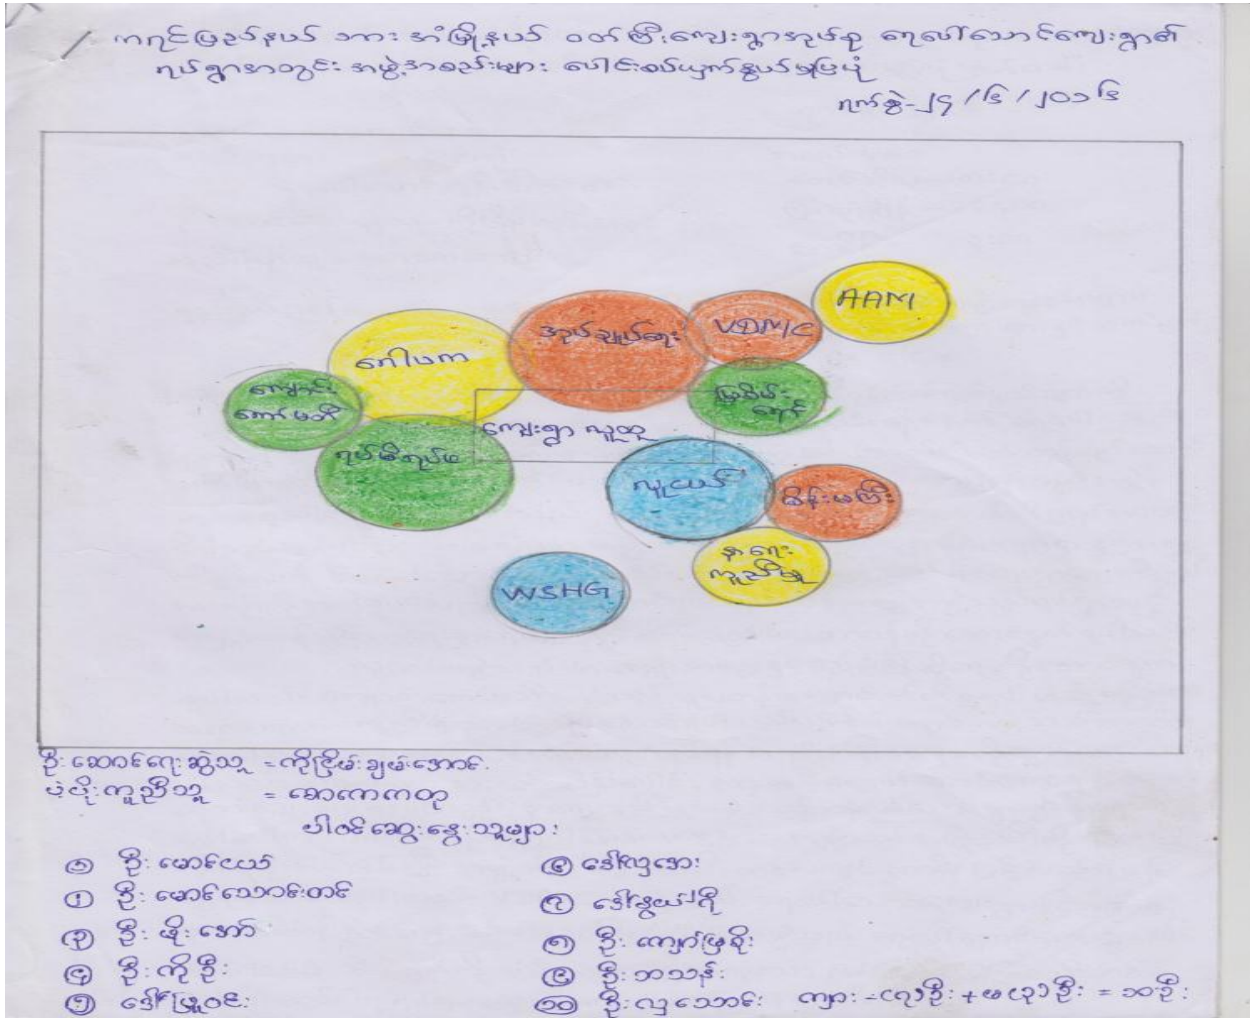 ကရင်ပြည်နယ် ဘားအံမြို့နယ် ဝတ်ကြီးကျေးရွာအုပ်စု ရေလဲါသောင်ကျေးရွာ၏
ရပ်ရွာအတွင်း အဖွဲ့အစည်းများ ပေါင်းစပ်ယှက်နွယ်မှုပြပုံ
ရက်စွဲ-၂၄/၆/၂၀၁၆
AAM
အုပ်ချုပ်ရေး
VDMC
ဂေါပက
ကျောင်း
ကော်မတီ
မြစိမ်း
ရောင်
ကျေးရွာ လူထု
ရပ်မိရပ်ဖ
လူငယ်
မိန်းမကြီး
နာရေး
ကူညီမှု
WSHG
ဦးဆောင်ရေးဆွဲသူ = ကိုငြိမ်းချမ်းအောင်
ပံ့ပိုးကူညီသူ = စောကေကတု
ပါဝင်ဆွေးနွေးသူများ
၁ ဦးမောင်ငယ်
၂ ဦးမောင်သောင်းတင်
၃ ဦးဖိုးအော်
၄ ဦးကိုဦး
၅ ဒေါ်ဖြူဝင်း
၆ ဒေါ်လှအေး
၇ ဒေါ်နွယ်ဂို
၈ ဦးကျော်မြစိုး
၉ ဦးဘသန်း
၁၀ ဦးလှသောင်း ကျား-(၇)ဦး+မ(၃)ဦး = ၁၀ဦး